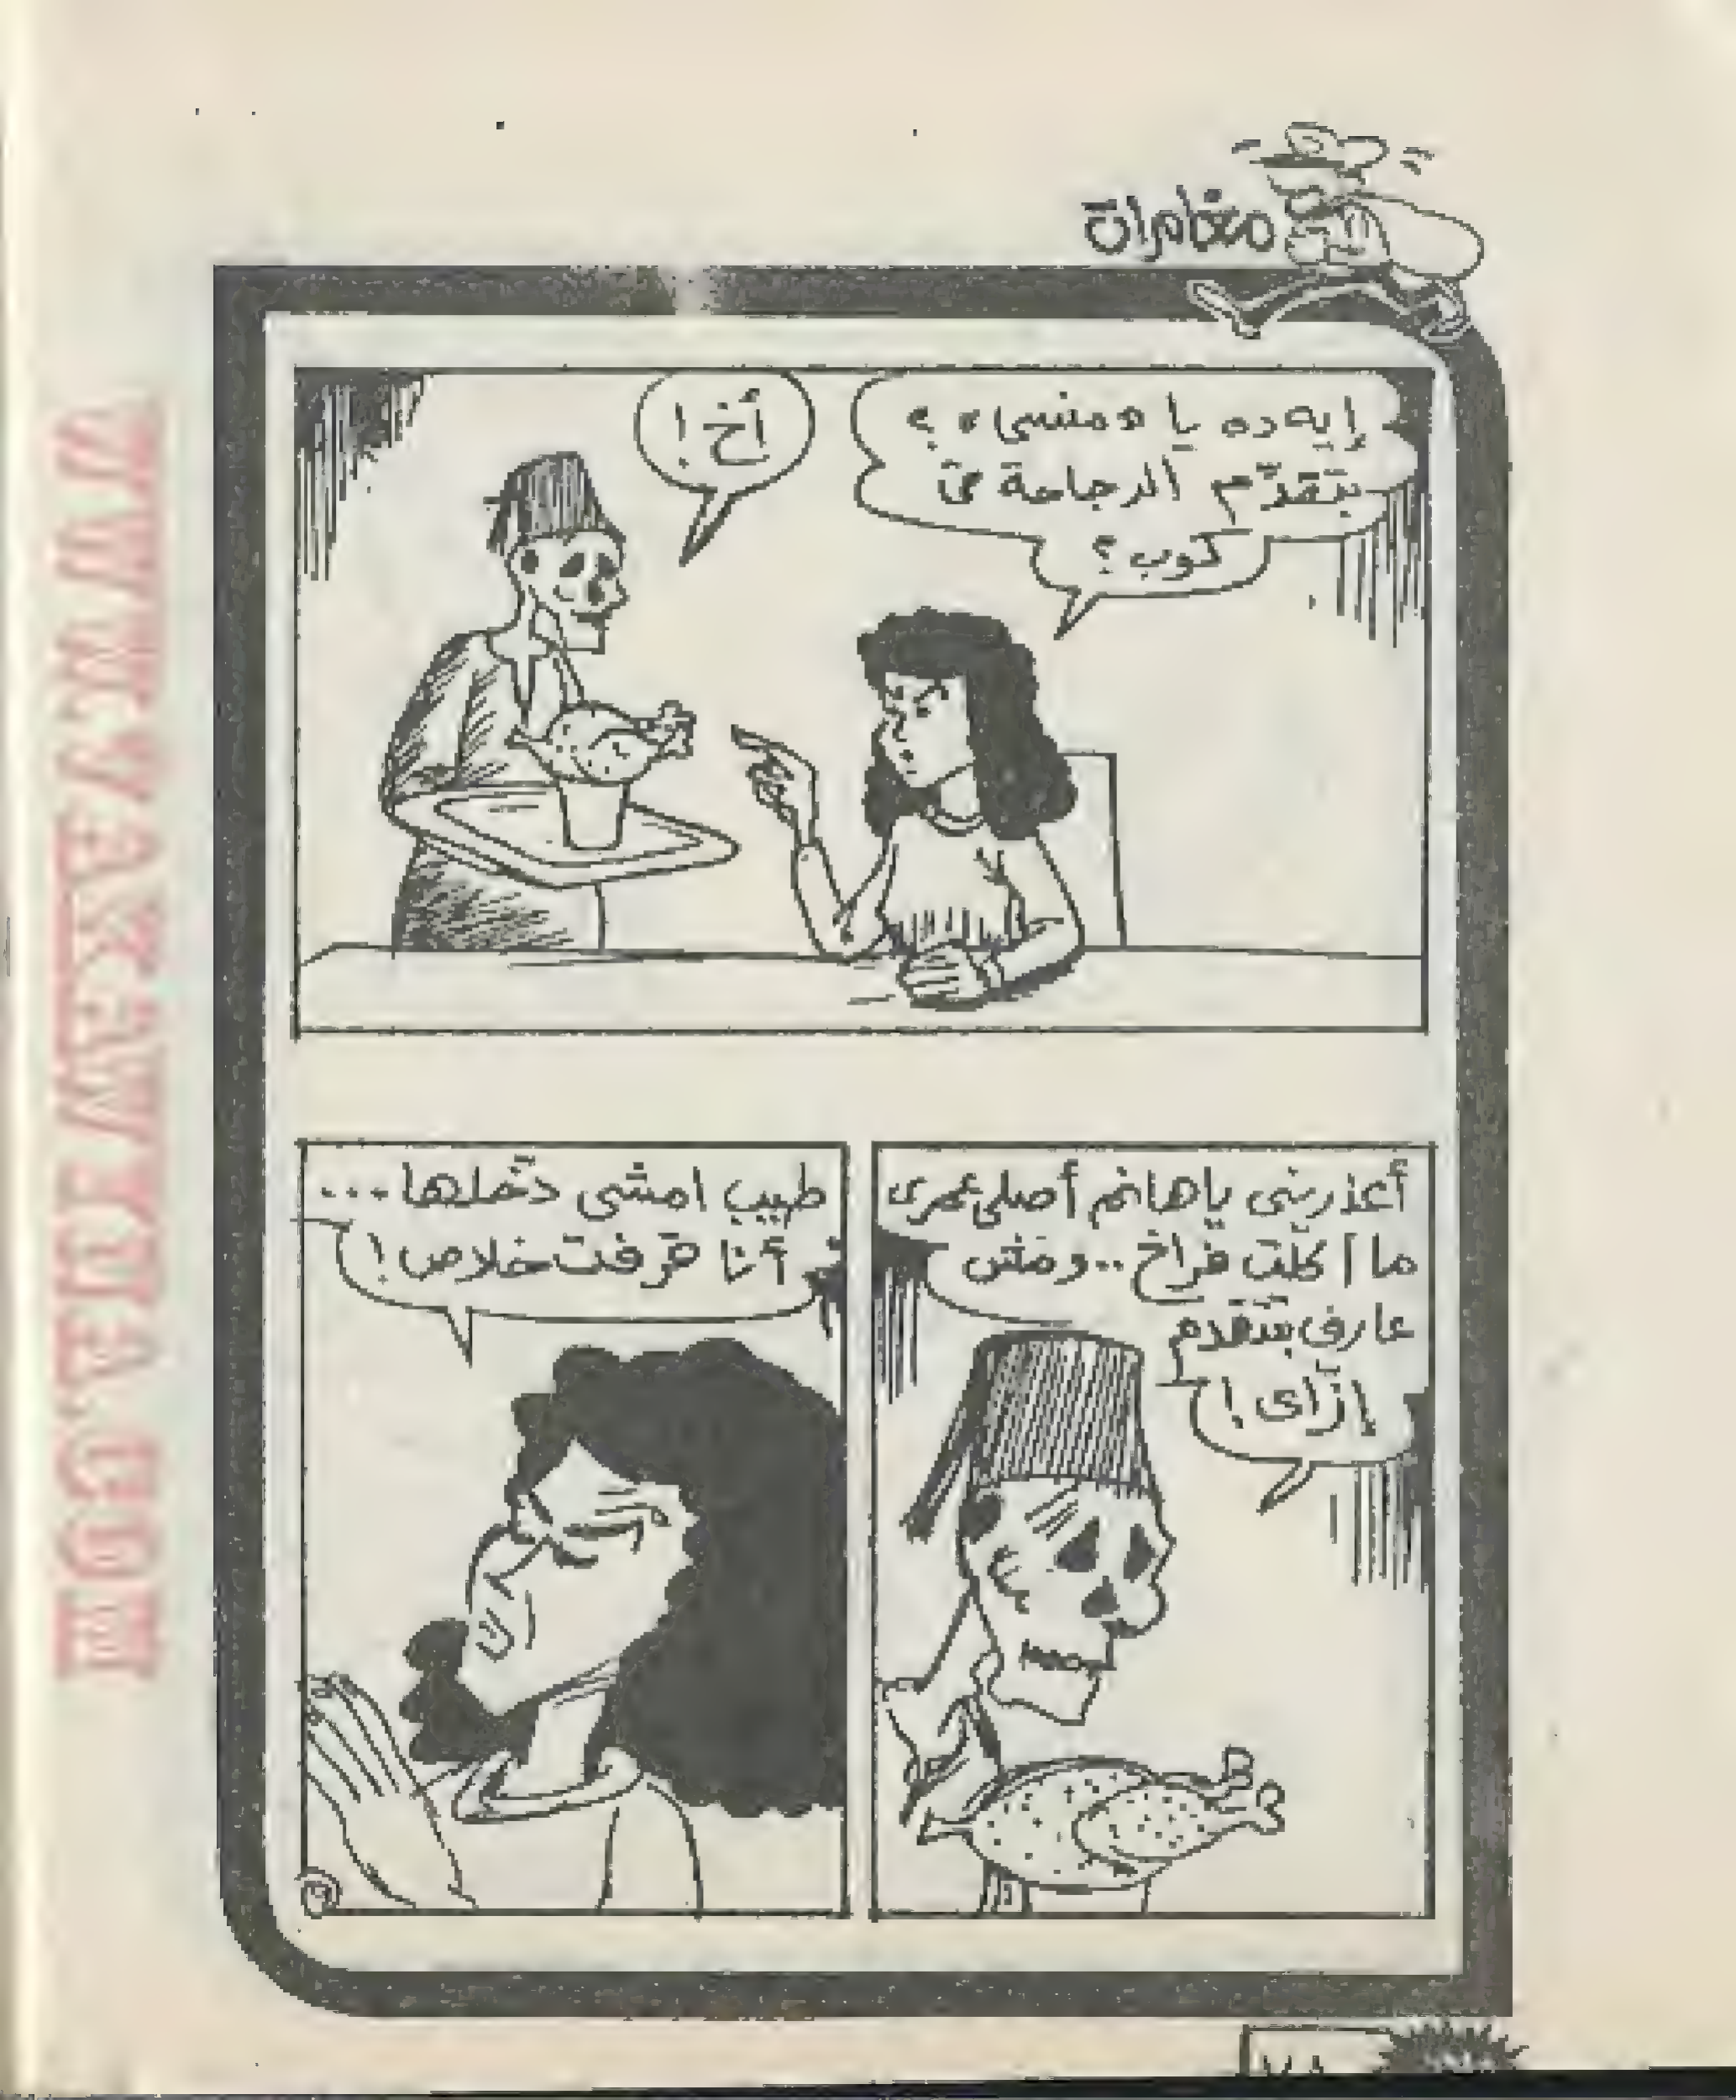 مغامرات
إيه ده يا «منسى» ؟
بتقدّم الدجاجة فى
كوب ؟
أخ !
أعذرينى ياهانم أصلى عمرى
ما آكلت فراخ .. ومش
عارف بتتقدم
ازّاى !
طيب امشى دخّلها ...
أنا قرفت خلاص !